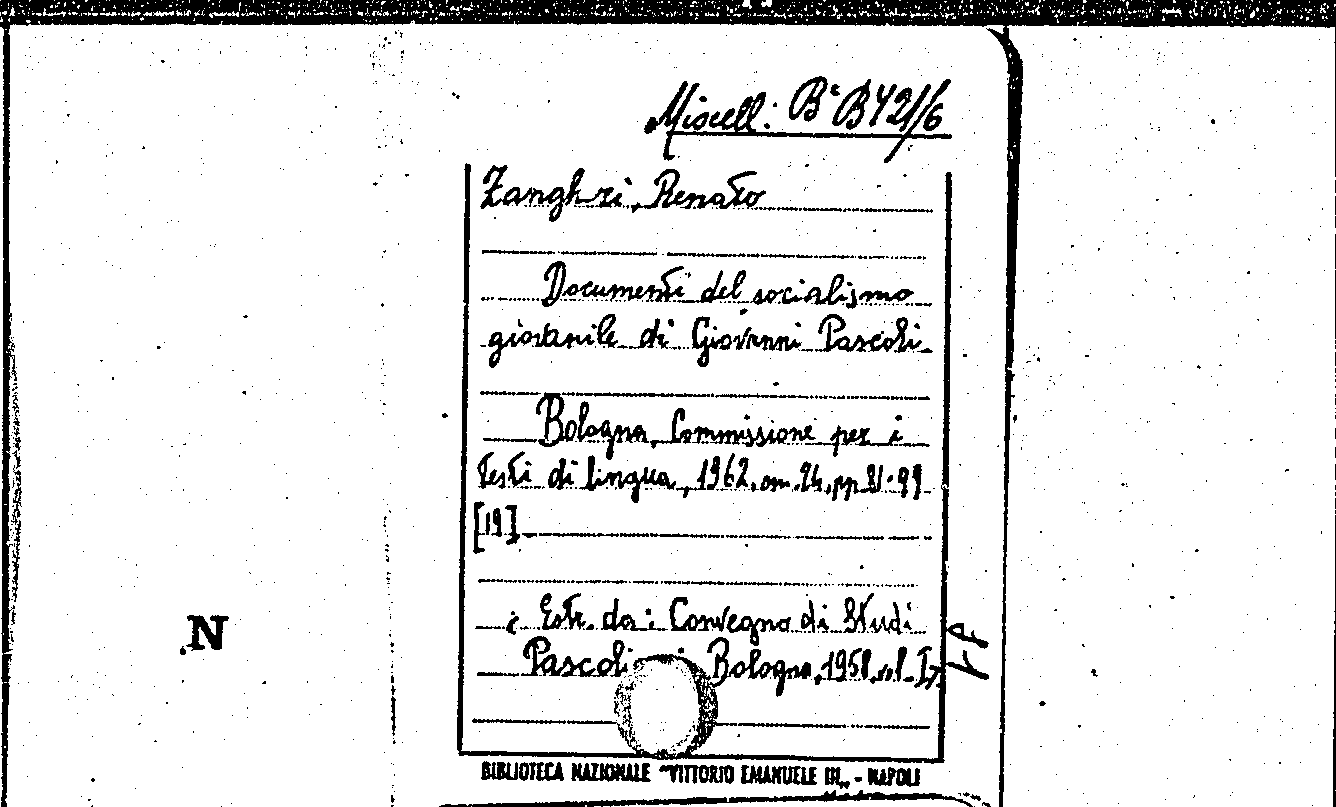 Miscell: B. B421/6
Zangheri, Renato
Documenti del socialismo
giovanile di Giovanni Pascoli
Bologna, Commissione per i
testi di lingua, 1962, cm. 24, pp. 81-99
[19]
Estr. da: Convegno di Studi
Pascoli Bologna, 1958, vol. I,
N
BIBLIOTECA NAZIONALE "VITTORIO EMANUELE III„ - NAPOLI